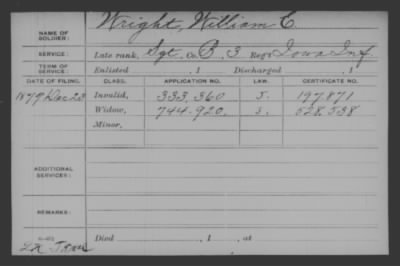 Wright, William C.
NAME OF SOLDIER:
SERVICE: Late rank, Sgt, Co. B, 3 Reg't Iowa Inf
TERM OF SERVICE: Enlisted , 1 Discharged , 1
DATE OF FILING. CLASS. APPLICATION NO. LAW. CERTIFICATE NO.
1879 Dec 20 Invalid, 333,360 J. 197871
Widow, 744.920, J. 528,538
Minor,
ADDITIONAL SERVICES:
REMARKS:
Died , 1 , at